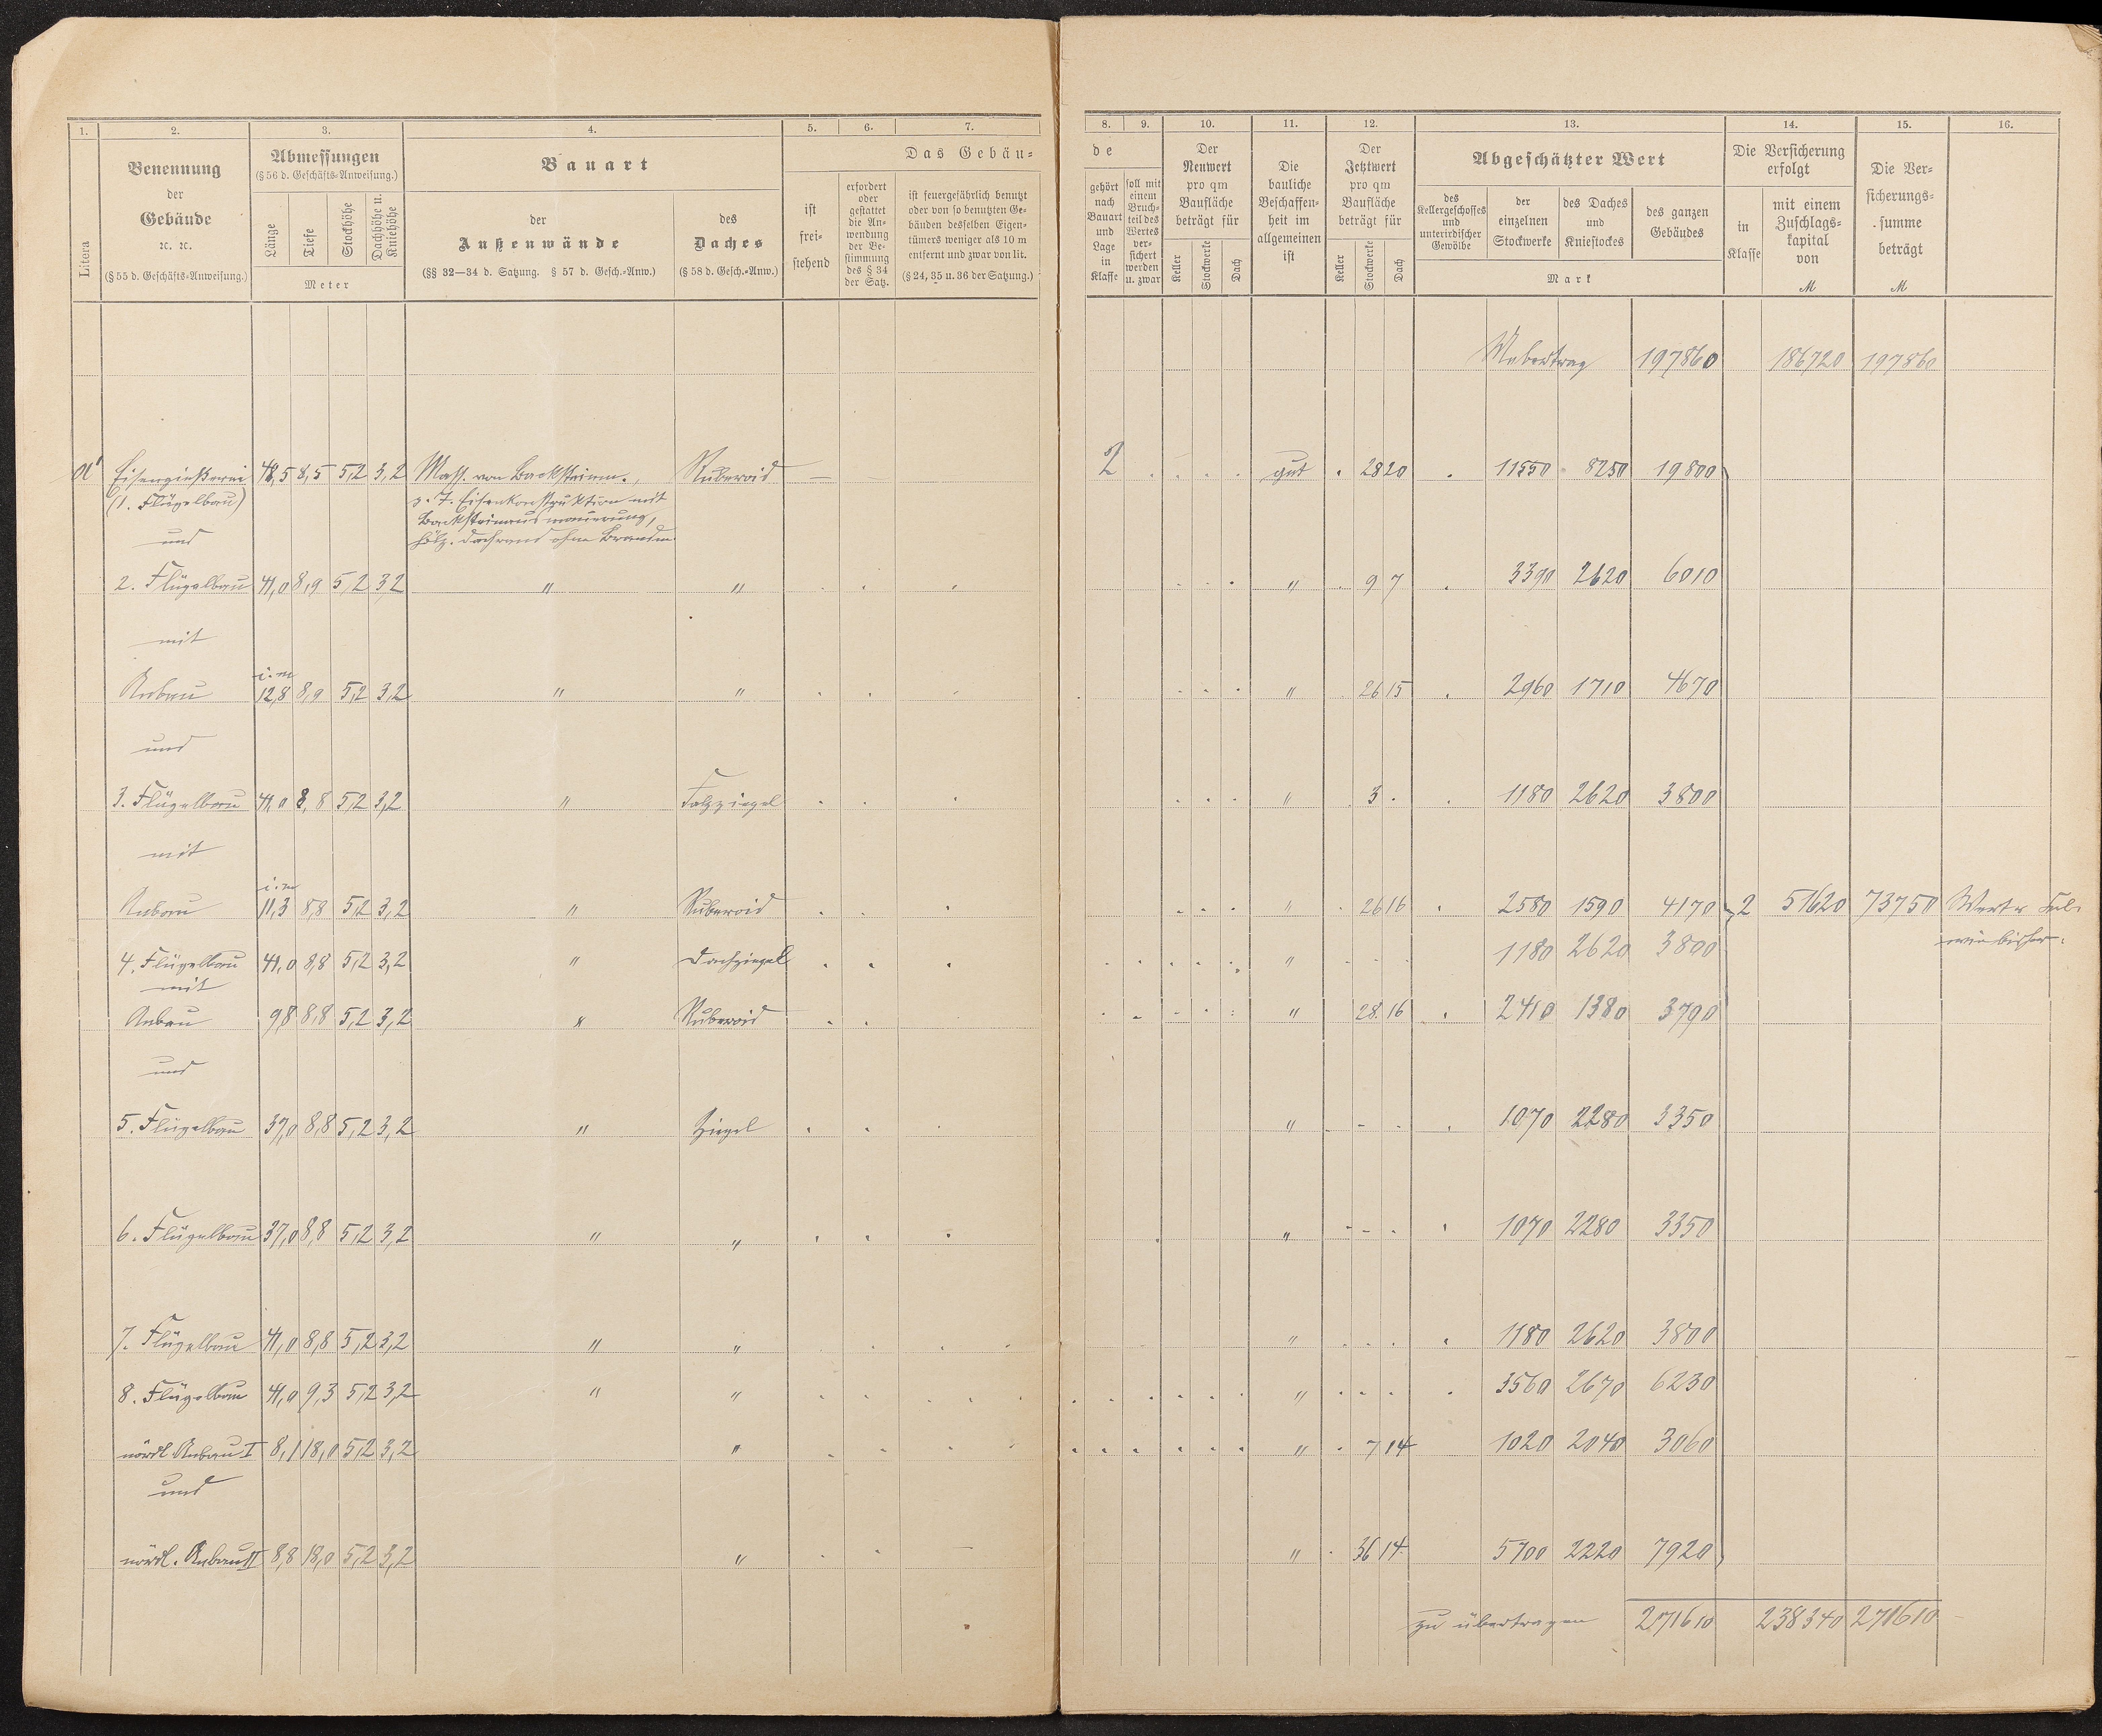 1. 2. 3. 4. 5. 6. 7.
Litera
Benennung
der
Gebäude
ꝛc. ꝛc.
(§ 55 d. Geschäfts-Anweisung.)
Abmessungen
(§ 56 d. Geschäfts-Anweisung.)
Länge
Tiefe
Stockhöhe
Dachhöhe u. Kniehöhe
Meter
Bauart
der
Außenwände
(§§ 32—34 d. Satzung. § 57 d. Gesch.-Anw.)
des
Daches
(§ 58 d. Gesch.-Anw.)
Das Gebäu-
ist
frei-
stehend
erfordert
oder
gestattet
die An-
wendung
der Be-
stimmung
des § 34
der Satz.
ist feuergefährlich benutzt
oder von so benutzten Ge-
bäuden desselben Eigen-
tümers weniger als 10 m
entfernt und zwar von lit.
(§ 24, 35 u. 36 der Satzung.)
Eisengießerei 48,5 8,5 5,2 3,2 Mass. von Backsteinen, Ruberoid —
(1. Flügelbau) z. T. Eisenkonstruktion mit
Backsteinausmauerung,
und hölz. Dachrand ohne
2. Flügelbau 41,0 8,9 5,2 3,2 " "
mit
i. m
Anbau 12,8 8,9 5,2 3,2 " "
und
3. Flügelbau 41,0 8,8 5,2 3,2 " Falzziegel
mit
i. m
Anbau 11,3 8,8 5,2 3,2 " Ruberoid
4. Flügelbau 41,0 8,8 5,2 3,2 " Dachziegel
mit
Anbau 9,8 8,8 5,2 3,2 " Ruberoid
und
5. Flügelbau 37,0 8,8 5,2 3,2 " Ziegel
6. Flügelbau 37,0 8,8 5,2 3,2 " "
7. Flügelbau 41,0 8,8 5,2 3,2 " "
8. Flügelbau 41,0 9,3 5,2 3,2 " "
nördl. Anbau I 8,1 18,0 5,2 3,2 "
und
nördl. Anbau II 8,8 18,0 5,2 3,2 "
8. 9. 10. 11. 12. 13. 14. 15. 16.
de
gehört
nach
Bauart
und
Lage
in
Klasse
soll mit
einem
Bruch-
teil des
Wertes
ver-
sichert
werden
u. zwar
Der
Neuwert
pro qm
Baufläche
beträgt für
Keller
Stockwerke
Dach
Die
bauliche
Beschaffen-
heit im
allgemeinen
ist
Der
Jetztwert
pro qm
Baufläche
beträgt für
Keller
Stockwerke
Dach
Abgeschätzter Wert
des
Kellergeschosses
und
unterirdischer
Gewölbe
der
einzelnen
Stockwerke
des Daches
und
Kniestockes
des ganzen
Gebäudes
Mark
Die Versicherung
erfolgt
in
Klasse
mit einem
Zuschlags-
kapital
von
ℳ
Die Ver-
sicherungs-
summe
beträgt
ℳ
Uebertrag 197860 186720 197860
2 gut 28 20 11550 8250 19800
" 9 7 3390 2620 6010
" 26 15 2960 1710 4670
" 3 1180 2620 3800
" 26 16 2580 1590 4170 2 51620 73750 Wert
wie bisher.
" 1180 2620 3800
" 28 16 2410 1380 3790
" 1070 2280 3350
" 1070 2280 3350
" 1180 2620 3800
" 3560 2670 6230
" 7 14 1020 2040 3060
" 36 14 5700 2220 7920
zu übertragen 271610 238340 271610